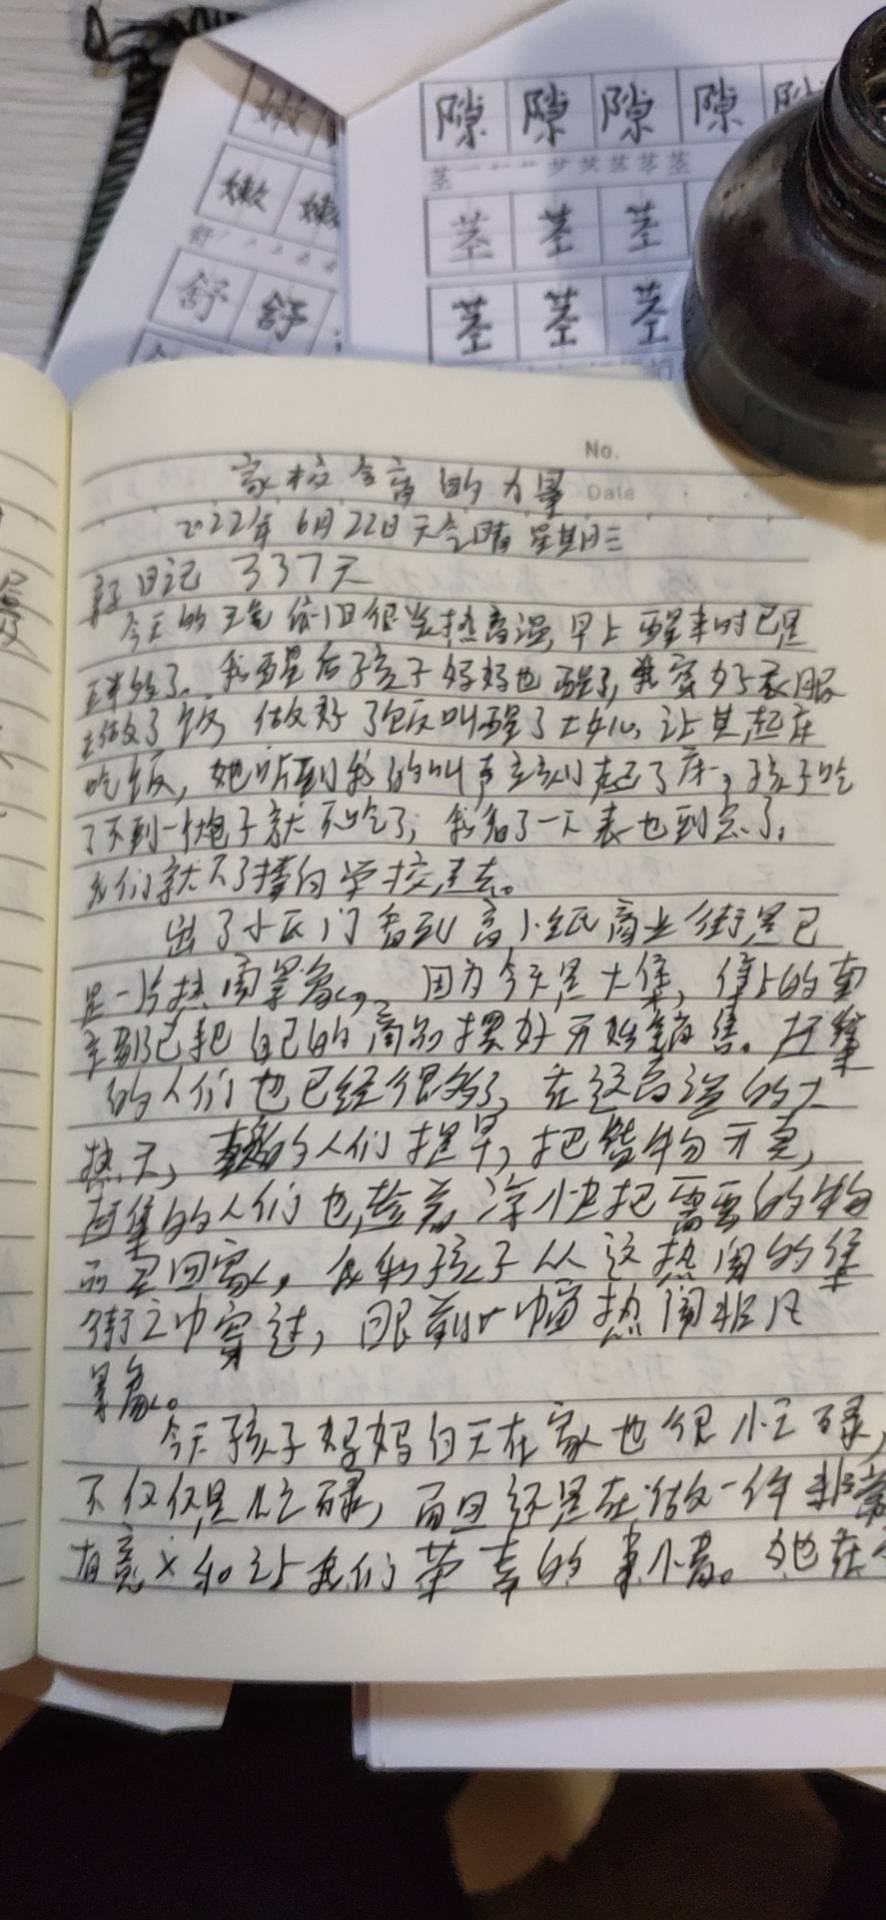 嫩
嫩 嫩
舒
舒 舒
隙 隙 隙 隙
茎
茎 茎 茎
茎 茎 茎
No.
Date
家校合育的力量
2022年6月22日 天气晴 星期三
亲子日记 337天
今天的天气依旧很炎热高温,早上醒来时已是
了。我醒后孩子妈妈也醒了,我穿好衣服
去做了饭,做好了饭叫醒了女儿,让其起床
吃饭,她听到我的叫声立刻起了床,孩子吃
了不到一个包子就不吃了,我看了一下表也到点了,
我们就下了楼向学校走去。
出了小区门看到高小纸商业街是已
是一片热闹景象,因为今天是大集,集上的卖
主都已把自己的商品摆好开始销售。赶集
的人们也已经很多了,在这高温的大
热天,勤的人们提早,把货物齐
赶集的人们也趁着凉快把需要的物
品买回家,我和孩子从这热闹的集
街之中穿过,眼前一幅热闹非凡
景象。
今天孩子妈妈白天在家也很忙碌,
不仅仅是忙碌,而且还是在做一件非常
有意义和让我们荣幸的事情。她在